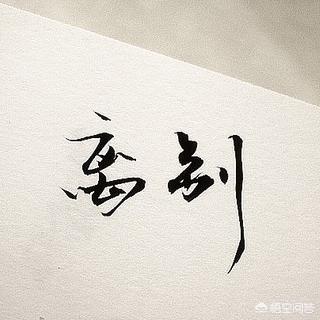 离别
悟空问答